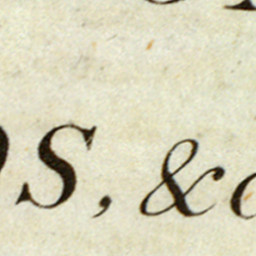 S, &c